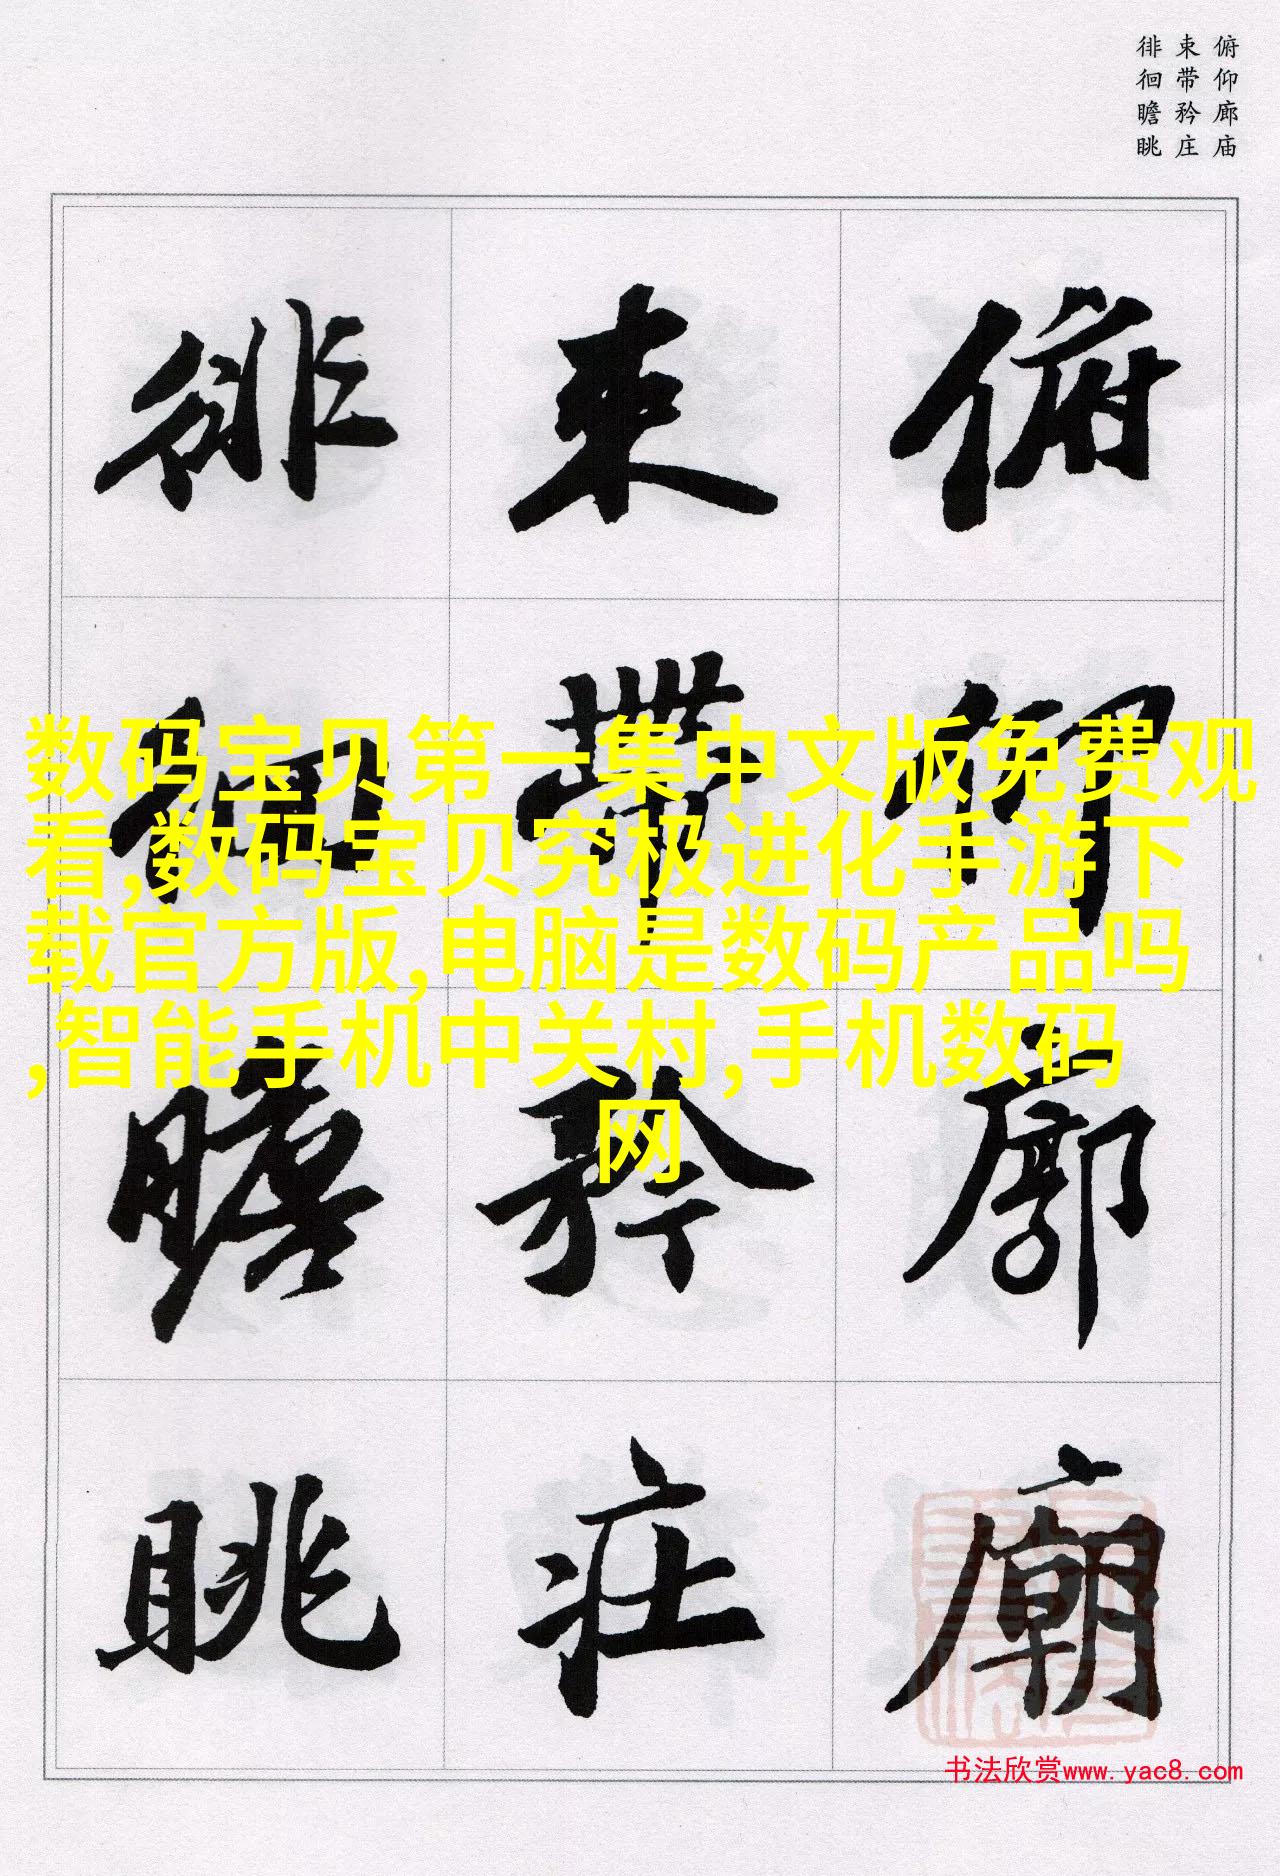 俯仰廊庙
束带矜庄
徘徊瞻眺
俯仰廊廟
束帶矜庄
徘徊瞻眺
数码宝贝第一集中文版免费观
看,数码宝贝究极进化手游下
载官方版,电脑是数码产品吗
,智能手机中关村,手机数码
网
书法欣赏www.yac8.com